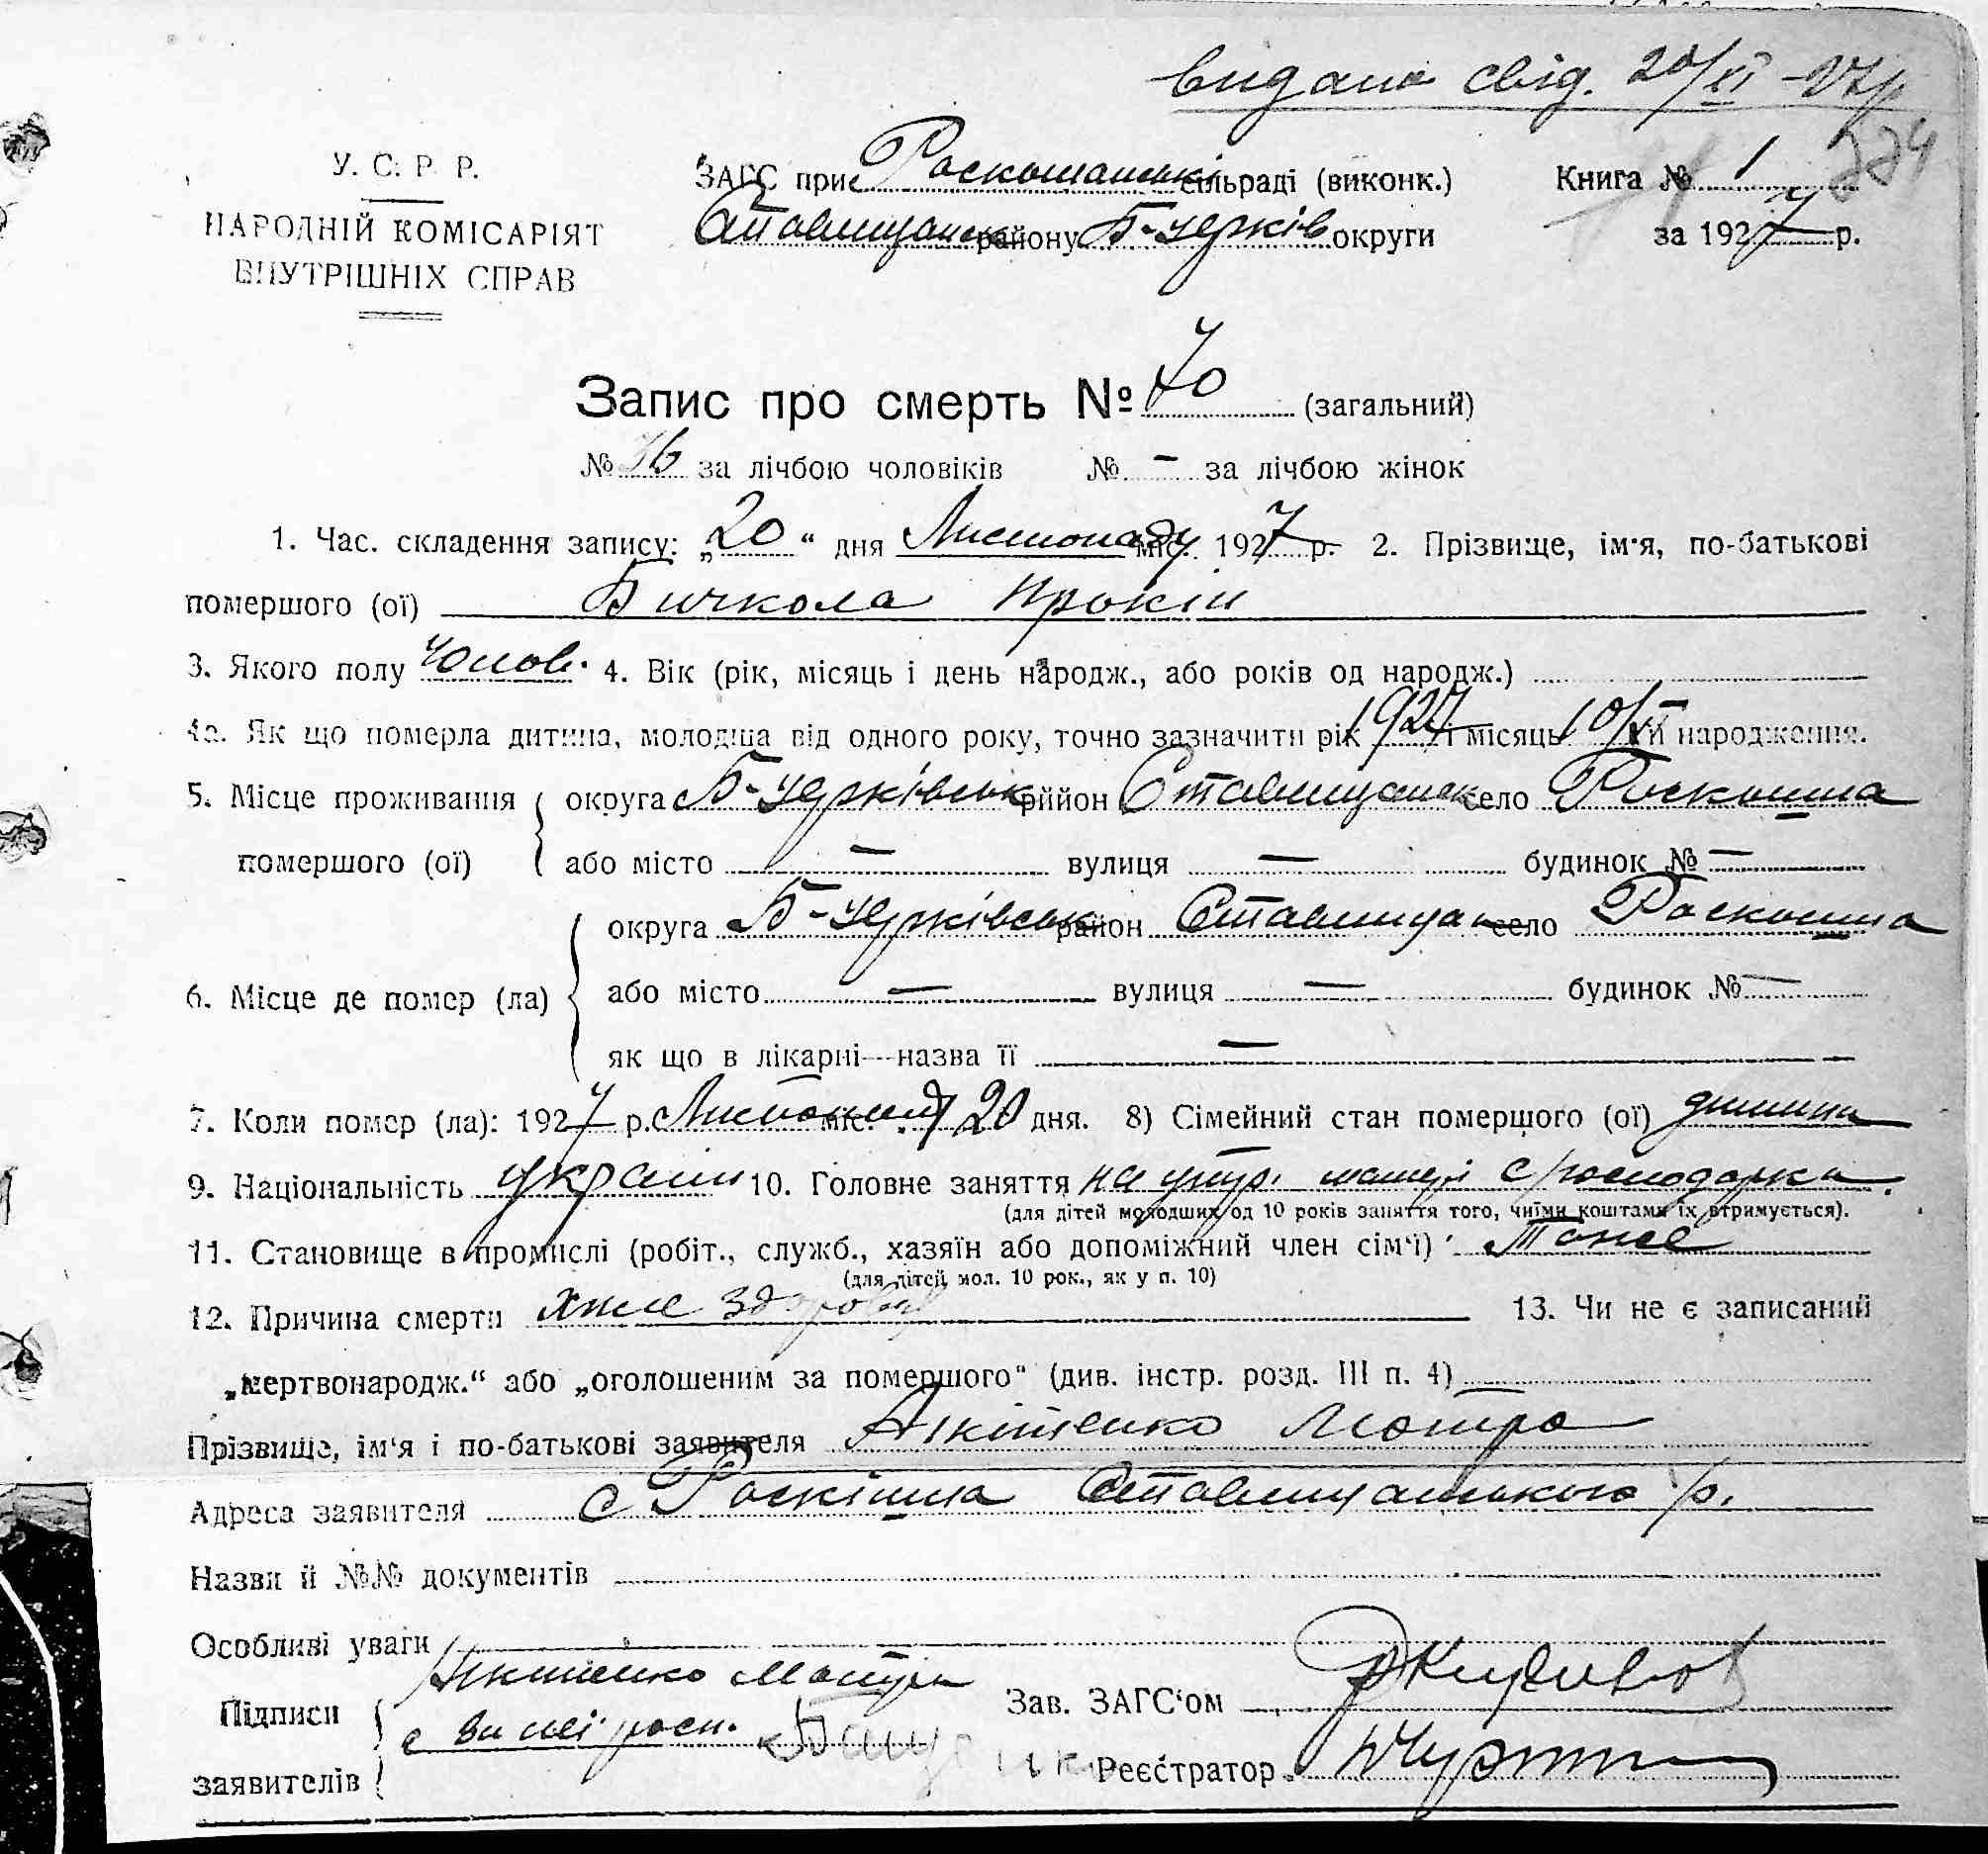 видано свід. 20/XI-27р.
У. С. Р. Р.
НАРОДНІЙ КОМІСАРІЯТ
ВНУТРІШНІХ СПРАВ
ЗАГС при Роскошанські сільраді (виконк.)
Ставищанськ району Б-церків округи
Книга № 1
за 1927 р.
Запис про смерть № 70 (загальний)
№ 36 за лічбою чоловіків № — за лічбою жінок
1. Час. складення запису: „20“ дня Листопаду міс. 1927 р. 2. Прізвище, ім‘я, по-батькові
помершого (ої) Бичкола Прокіп
3. Якого полу Чолов. 4. Вік (рік, місяць і день народж., або років од народж.)
4а. Як що померла дитина, молодша від одного року, точно зазначити рік 1927 і місяць 10/VII її народження.
5. Місце проживання округа Б-церківськ рййон Ставищанськ село Роскошша
помершого (ої) або місто — вулиця — будинок № —
округа Б-церківськ район Ставищан село Роскошша
6. Місце де помер (ла) або місто — вулиця — будинок № —
як що в лікарні—назва її —
7. Коли помер (ла): 1927 р. Листопаду міс. 20 дня. 8) Сімейний стан помершого (ої) дитина
9. Національність україн 10. Головне заняття на утр. матері с/господарка.
(для дітей молодших од 10 років заняття того, чиїми коштами їх втримується).
11. Становище в промислі (робіт., служб., хазяїн або допоміжний член сім‘ї) Тоже
(для дітей мол. 10 рок., як у п. 10)
12. Причина смерти 13. Чи не є записаний
„мертвонародж.“ або „оголошеним за помершого“ (див. інстр. розд. III п. 4) —
Прізвище, ім‘я і по-батькові заявителя Микитенко Мотря
Адреса заявителя с Роскішша Ставищанського р.
Назви й №№ документів
Особливі уваги
Підписи заявителів Микитенко Мотря
Зав. ЗАГС‘ом
Реєстратор